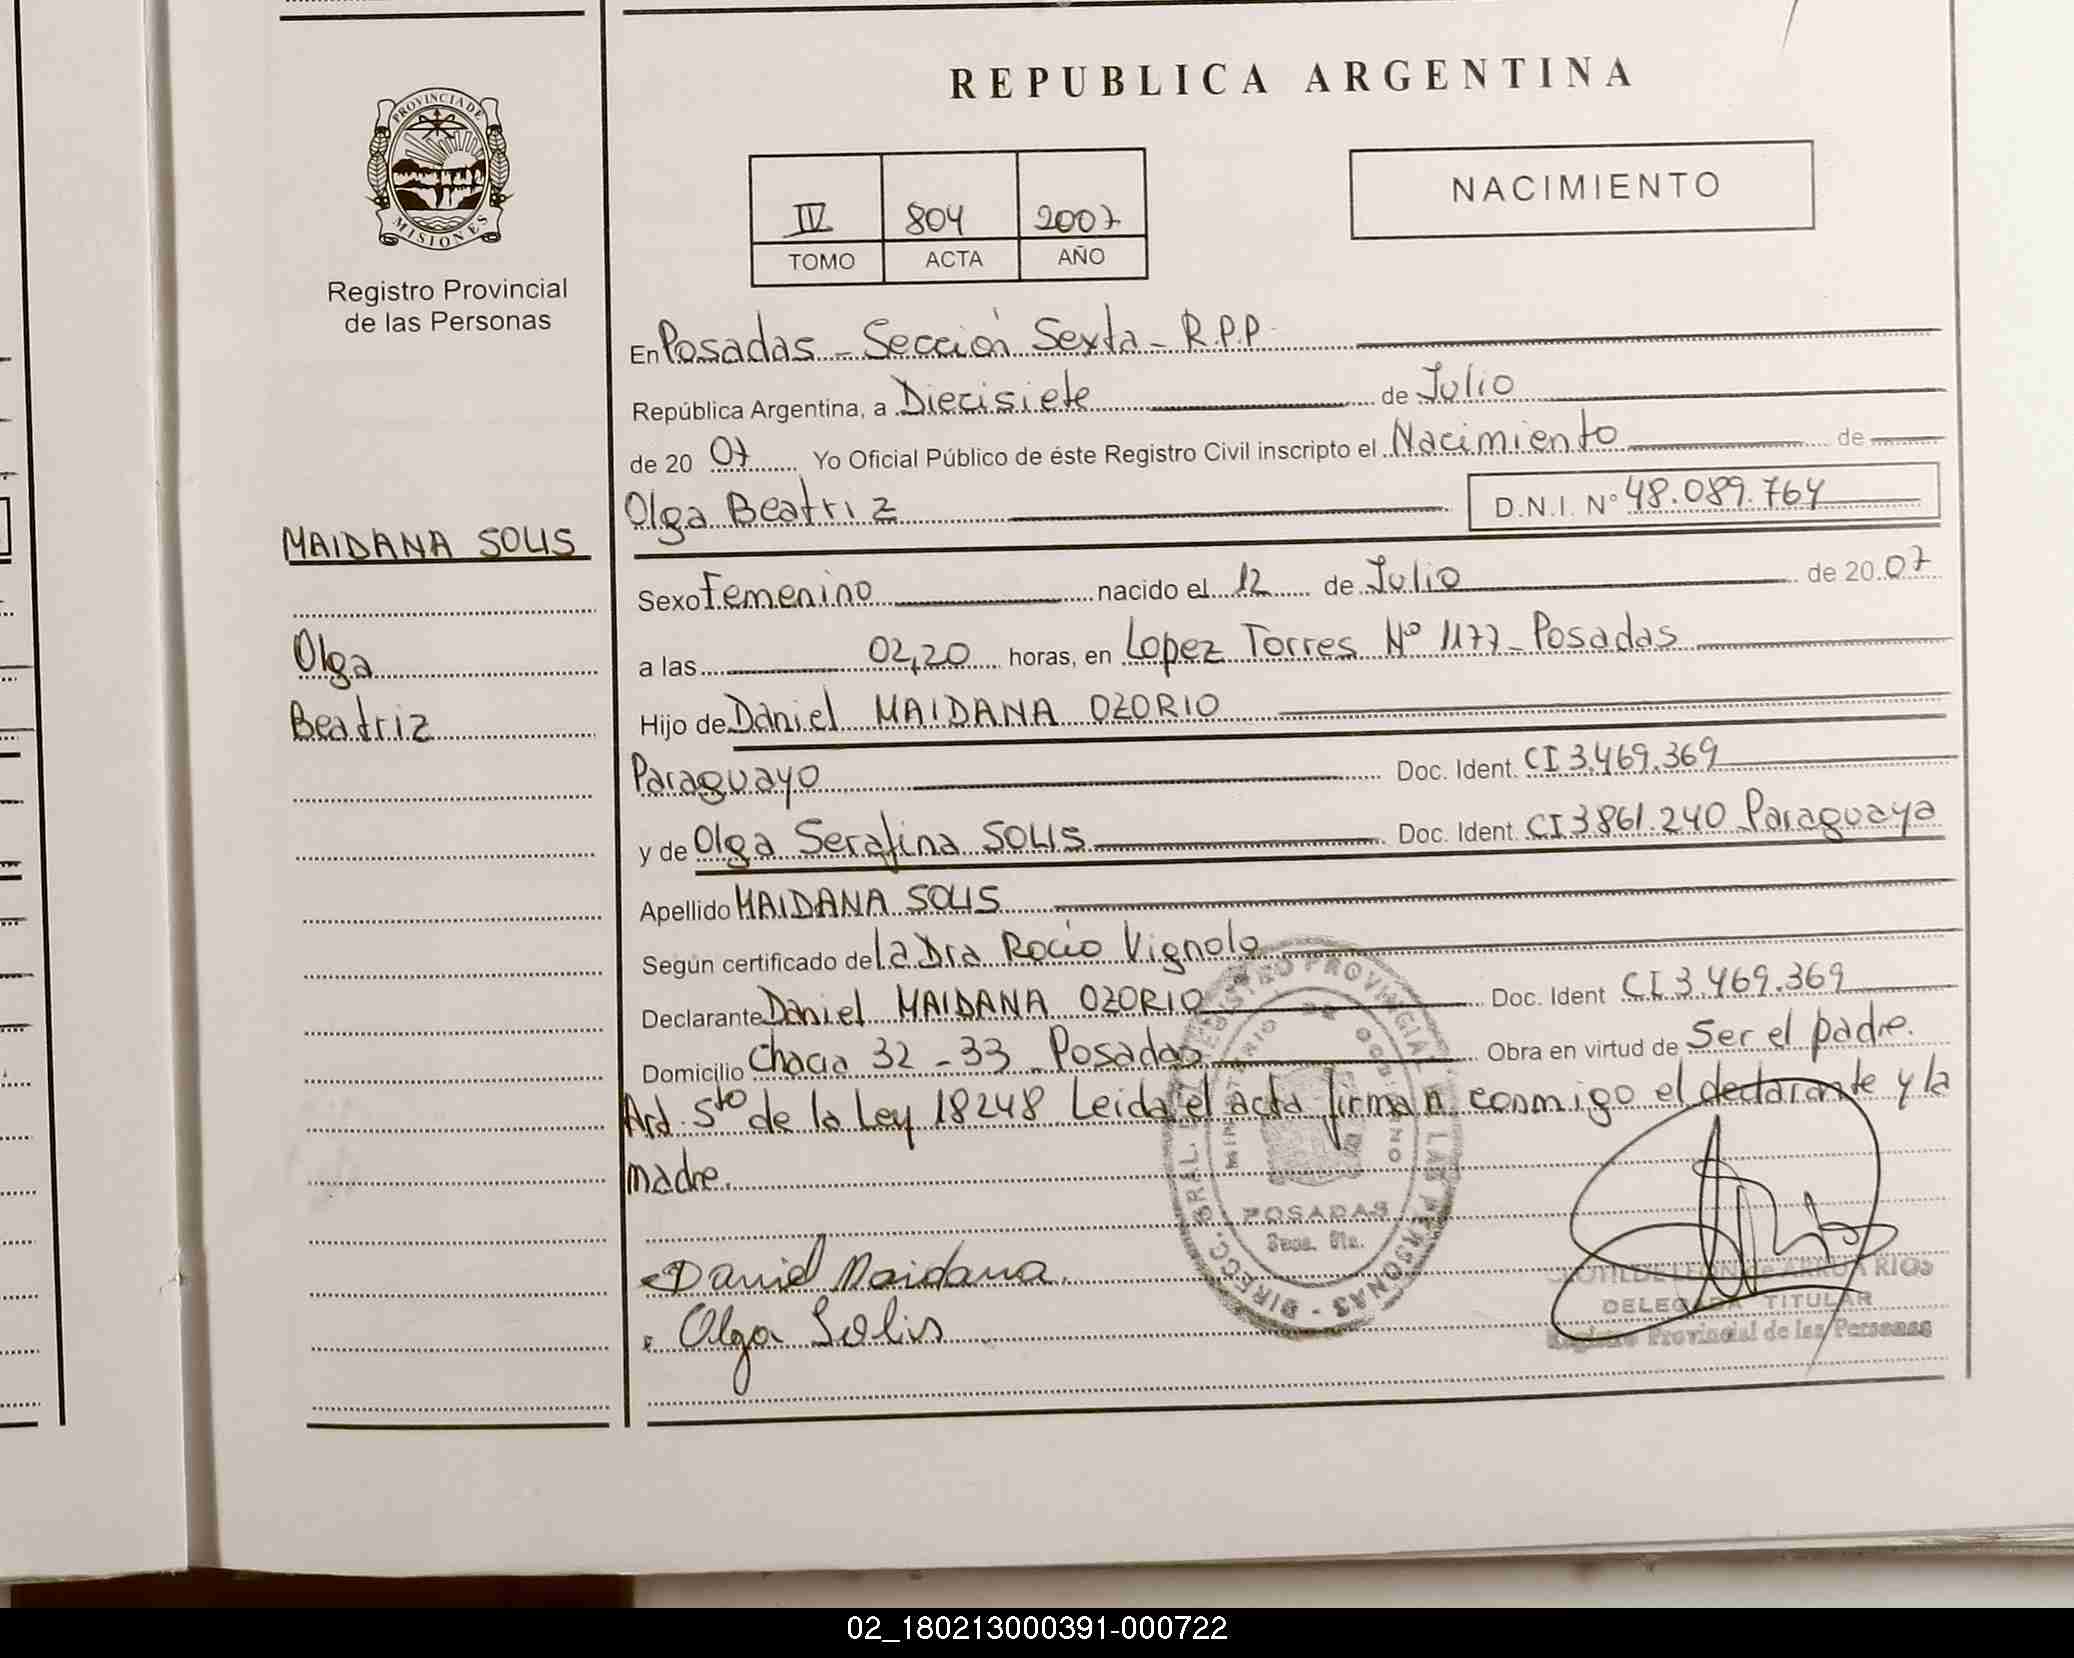 REPUBLICA ARGENTINA
PROVINCIA DE
MISIONES
Registro Provincial
de las Personas
IV 804 2007
TOMO ACTA AÑO
NACIMIENTO
MAIDANA SOLIS
Olga
Beatriz
En Posadas - Sección Sexta - R.P.P.
República Argentina, a Diecisiete de Julio
de 20 07 Yo Oficial Público de éste Registro Civil inscripto el Nacimiento de
Olga Beatriz D.N.I. N° 48.089.764
Sexo Femenino nacido el 12 de Julio de 20 07
a las 02,20 horas, en Lopez Torres Nº 1177 - Posadas
Hijo de Daniel MAIDANA OZORIO
Paraguayo Doc. Ident. CI 3.469.369
y de Olga Serafina SOLIS Doc. Ident. CI 3861.240 Paraguaya
Apellido MAIDANA SOLIS
Según certificado de la Dra Rocio Vignolo
Declarante Daniel MAIDANA OZORIO Doc. Ident CI 3.469.369
Domicilio Chacra 32 - 33 - Posadas Obra en virtud de Ser el padre.
Art. 5to de la Ley 18248 Leida el acta firman conmigo el declarante y la
madre.
DIRECC. GRAL. DEL REGISTRO PROVINCIAL DE LAS PERSONAS
MINISTERIO DE GOBIERNO
POSADAS
Secc. 6ta.
Daniel Maidana
Olga Solis
DELEGADA TITULAR
Registro Provincial de las Personas
02_180213000391-000722